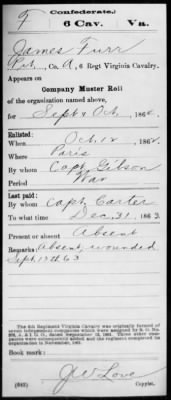 (Confederate.)
F 6 Cav. Va.
James Furr
Pvt., Co. A, 6 Regt Virginia Cavalry.
Appears on
Company Muster Roll
of the organization named above,
for Sept & Oct, 186
Enlisted:
When Oct. 12, 186
Where Paris
By whom Capt. Gibson
Period War
Last paid:
By whom Capt. Carter
To what time Dec. 31, 186
Present or absent Absent
Remarks: Absent, wounded
Sept 13th 63
The 6th Regiment Virginia Cavalry was originally formed of
seven independent companies which were assigned by S. O. No.
, A. & I. G. O., dated September 12, 1861. Three other companies
were subsequently added and the regiment completed its
organization in November, 1861.
Book mark:
J W Love
(642) Copyist.